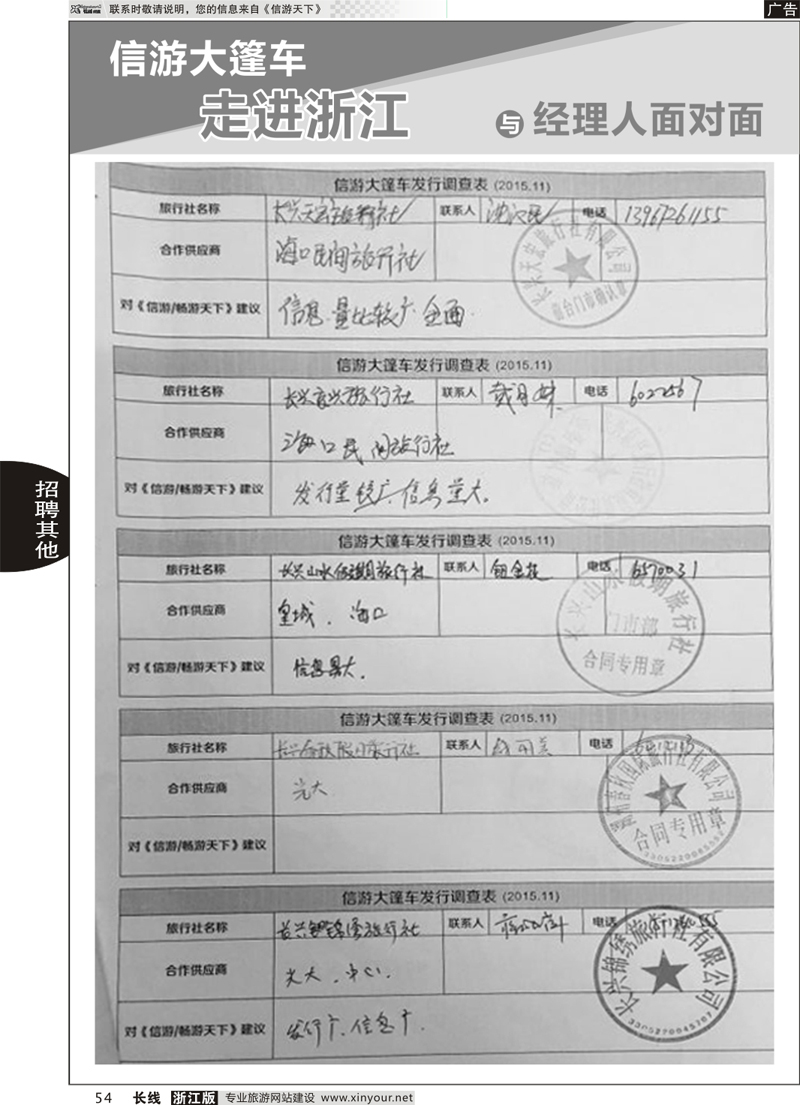 联系时敬请说明，您的信息来自《信游天下》
广告
信游大篷车
走进浙江
与 经理人面对面
招聘其他
信游大篷车发行调查表 (2015.11)
旅行社名称 联系人 电话 13967261155
合作供应商 海口民间旅行社
对《信游/畅游天下》建议 信息量比较广 全面.
信游大篷车发行调查表 (2015.11)
旅行社名称 联系人 戴月 电话 6022567
合作供应商 海口民间旅行社
对《信游/畅游天下》建议 发行量较广 信息量大.
信游大篷车发行调查表 (2015.11)
旅行社名称 长兴山水假期旅行社 联系人 钮金 电话 6570031
合作供应商 皇城、海口
对《信游/畅游天下》建议 信息量大.
长兴山水假期旅行社
门市部
合同专用章
信游大篷车发行调查表 (2015.11)
旅行社名称 联系人 电话
合作供应商 光大
对《信游/畅游天下》建议
合同专用章
信游大篷车发行调查表 (2015.11)
旅行社名称 联系人 电话
合作供应商 光大、中心.
对《信游/畅游天下》建议 发行广、信息广.
长兴锦绣旅行社有限公司
54 长线 浙江版 专业旅游网站建设 www.xinyour.net